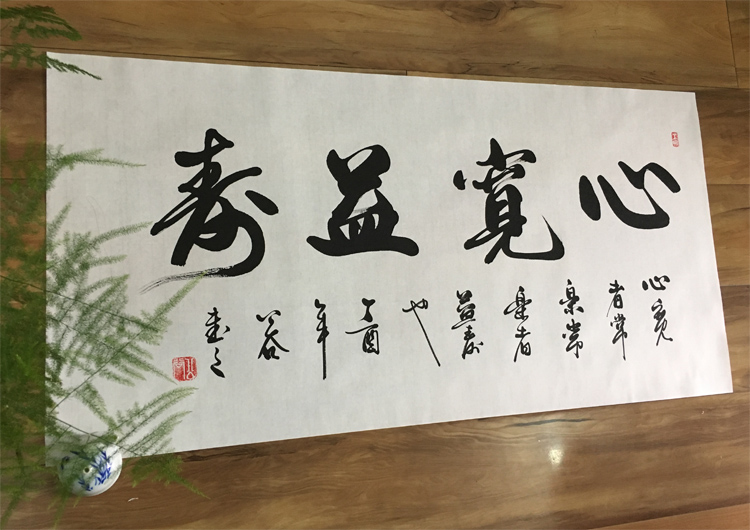 心寬益寿
心寬
者常
樂常
樂者
益寿
也
丁酉
年
書之